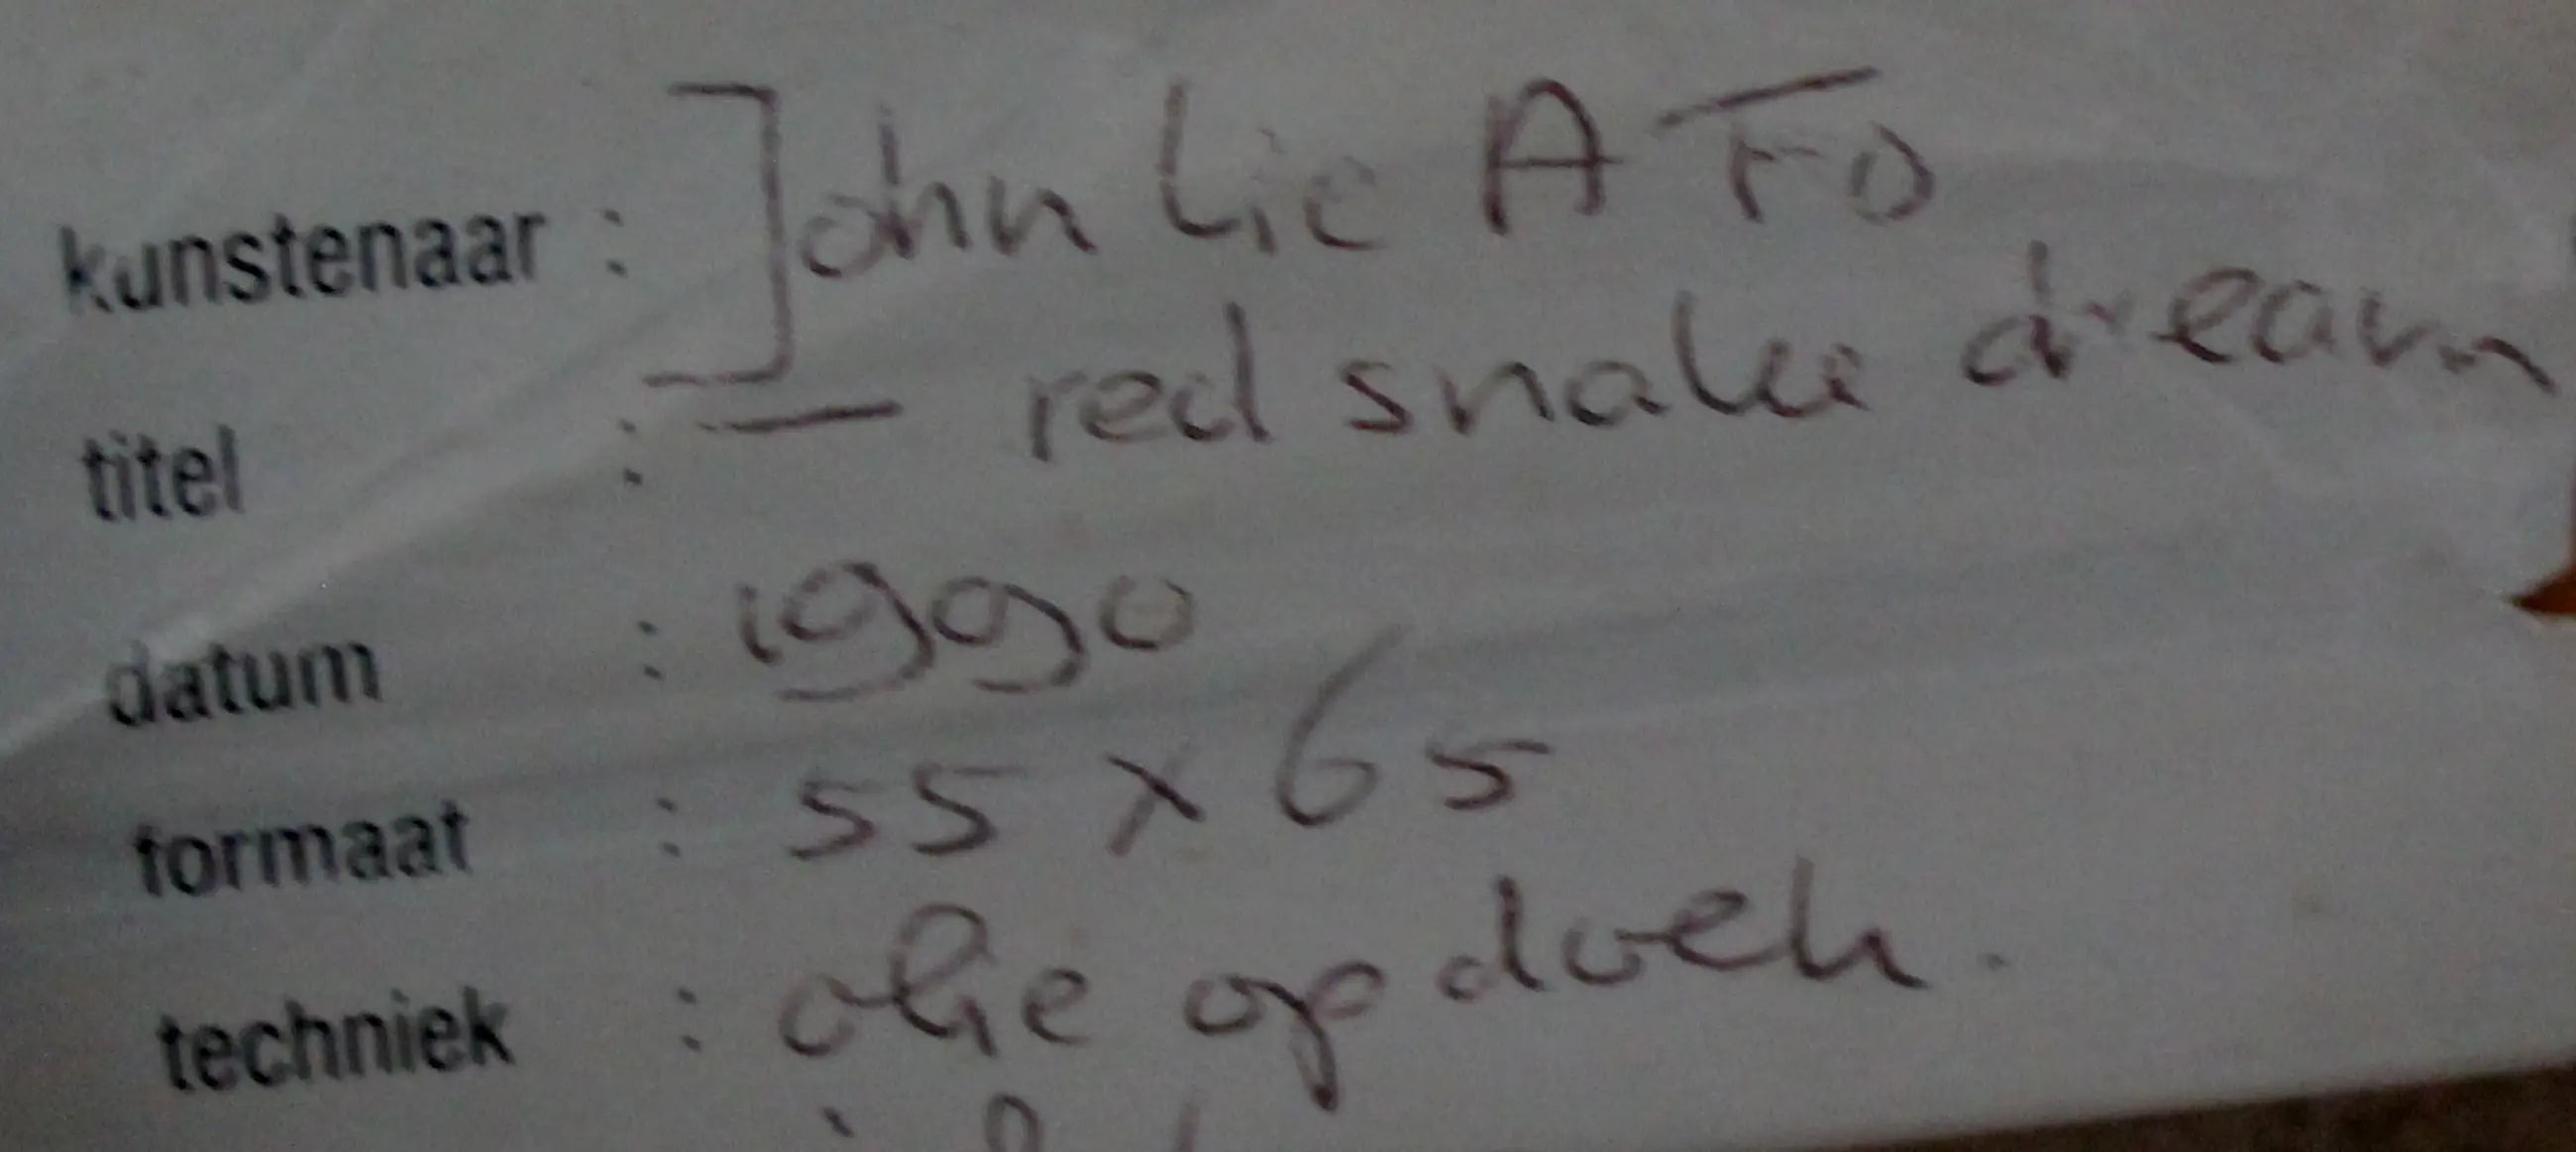 kunstenaar : John Lie A Fo
titel : — red snake dream
datum : 1990
formaat : 55 x 65
techniek : olie op doek.